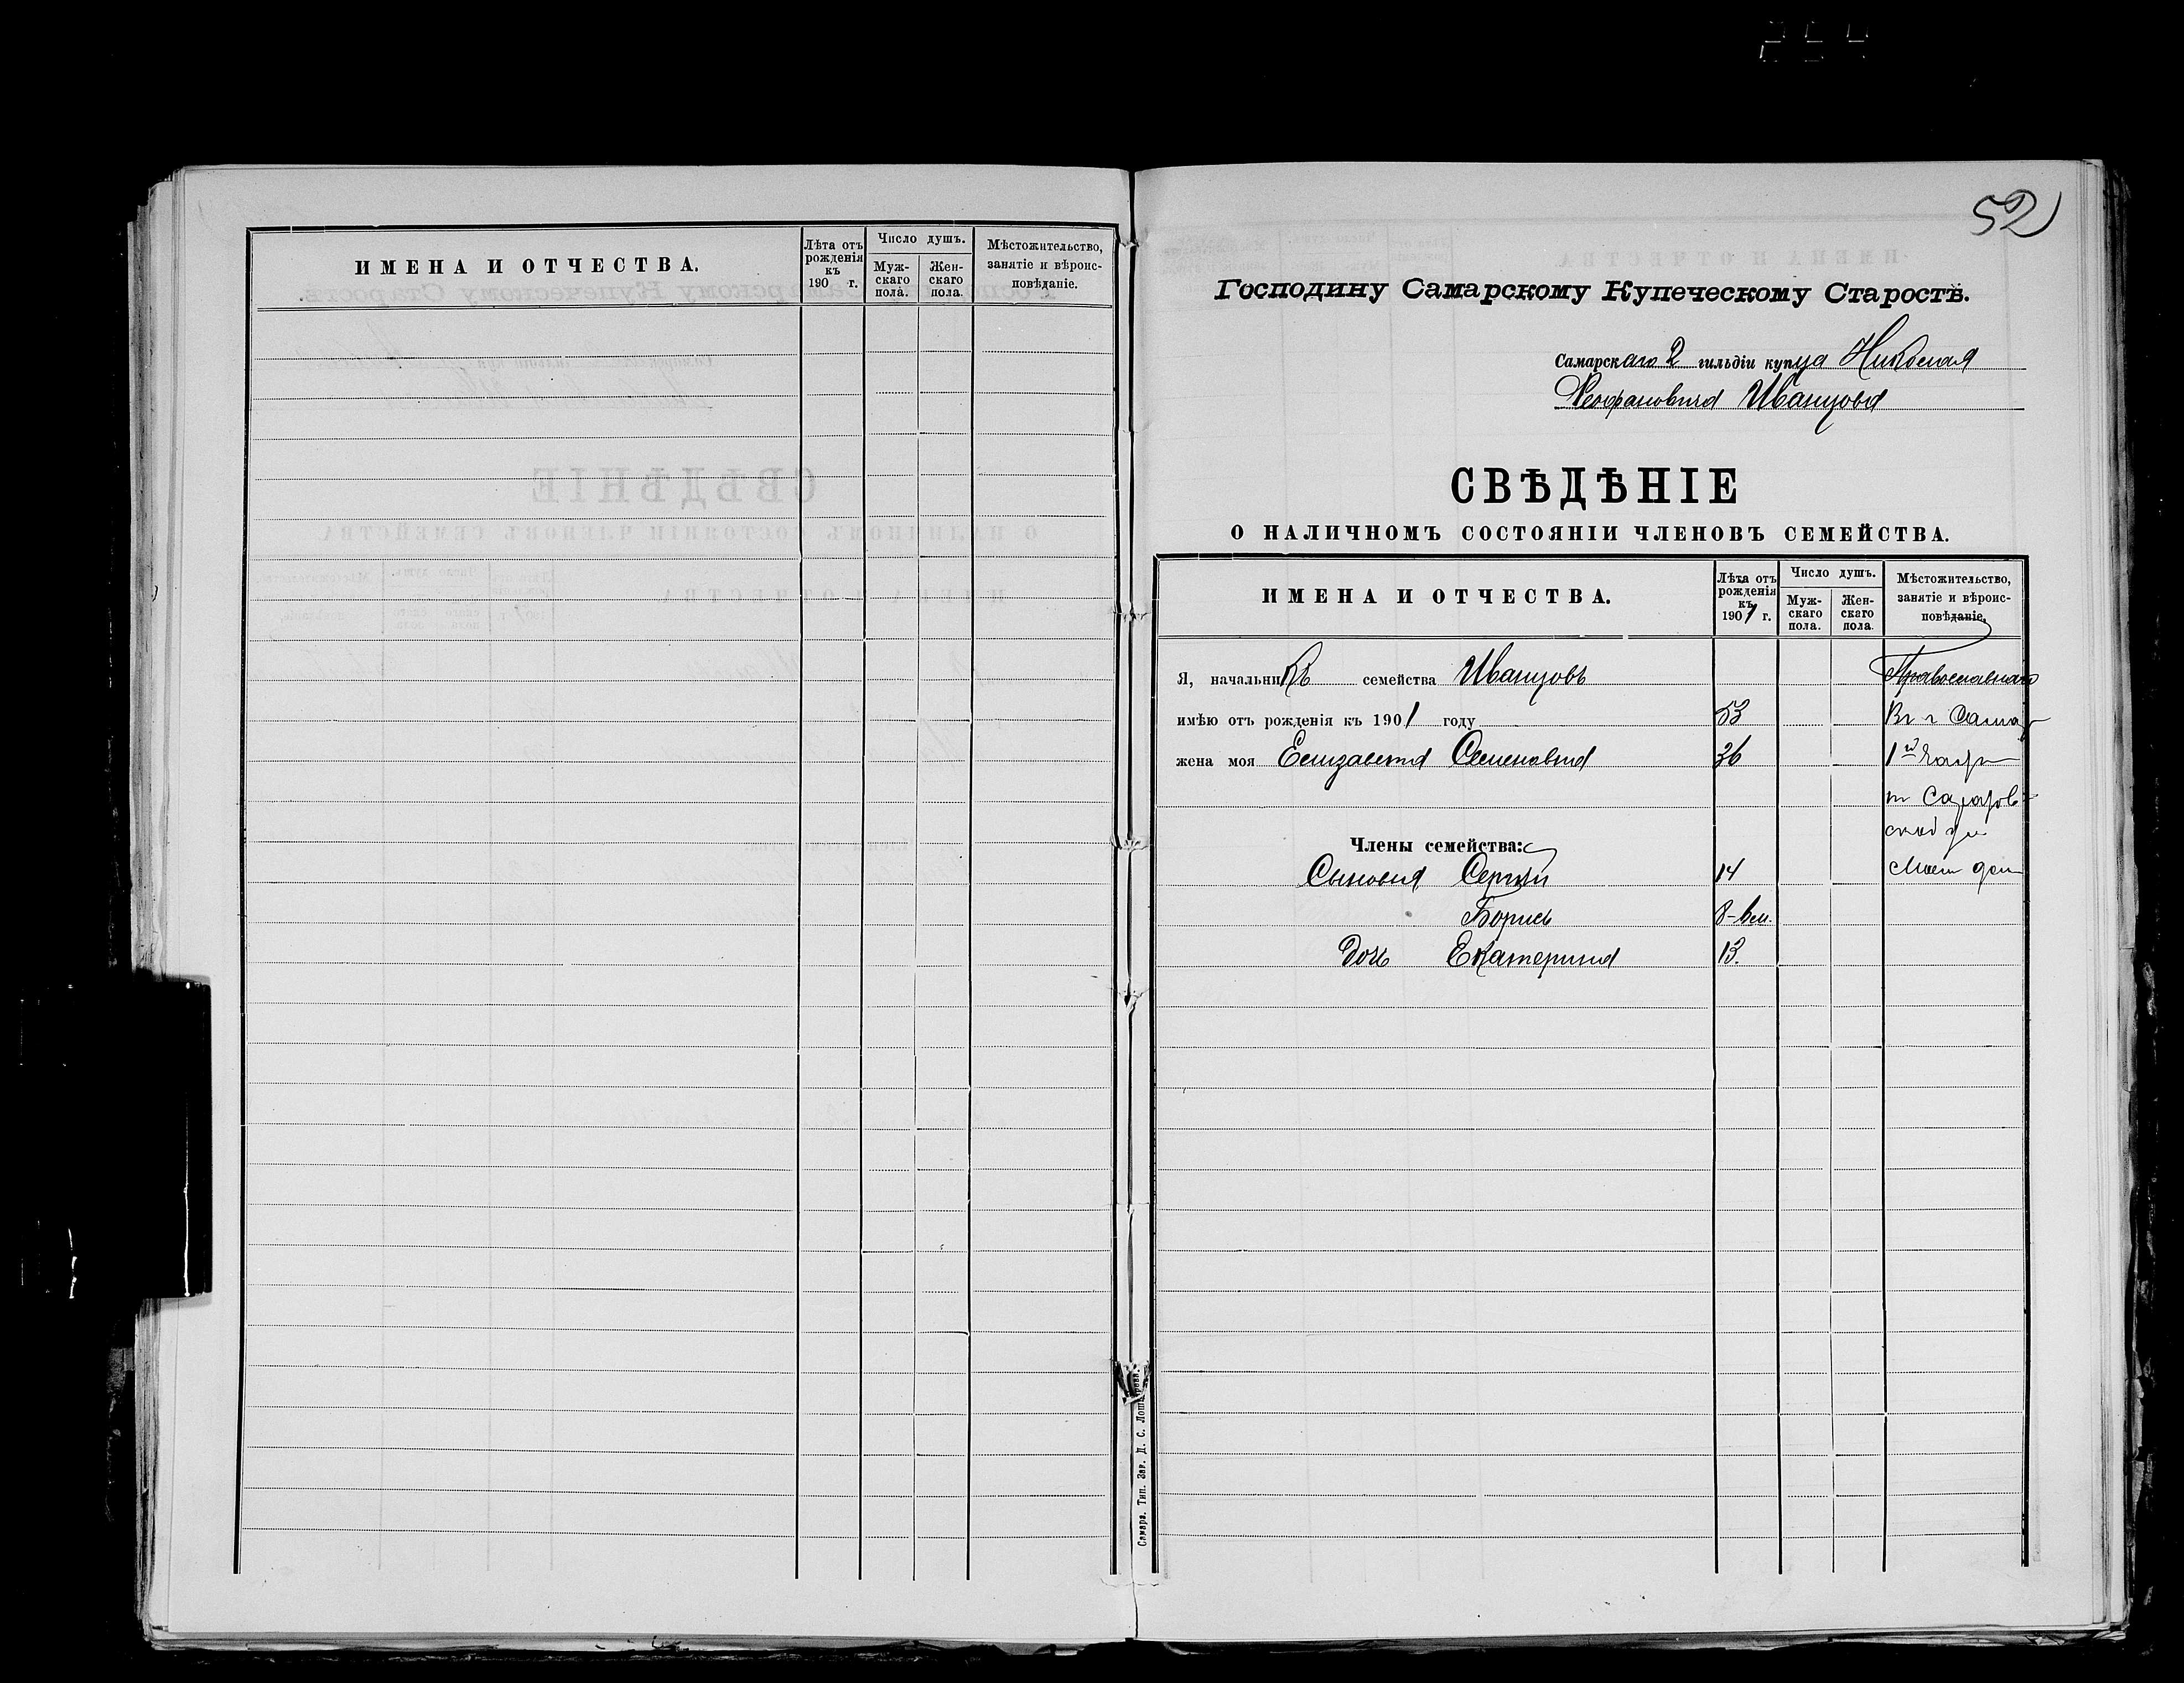 ИМЕНА И ОТЧЕСТВА.
Лѣта отъ рожденія къ 190 г.
Число душъ.
Мужскаго пола.
Женскаго пола.
Мѣстожительство, занятіе и вѣроисповѣданіе.
52
Господину Самарскому Купеческому Старостѣ.
Самарскаго 2 гильдіи купца Николая
Феофановича Иванцова
СВѢДѢНІЕ
О НАЛИЧНОМЪ СОСТОЯНІИ ЧЛЕНОВЪ СЕМЕЙСТВА.
ИМЕНА И ОТЧЕСТВА.
Лѣта отъ рожденія къ 1901 г.
Число душъ.
Мужскаго пола.
Женскаго пола.
Мѣстожительство, занятіе и вѣроисповѣданіе.
Я, начальникъ семейства Иванцовъ Православнаго
имѣю отъ рожденія къ 1901 году 53 Въ г Самар
жена моя Елизавета Семеновна 36 1й части
Саратов-
ской ул
Члены семейства:
Сыновья Сергѣй 14 дом
Борисъ 8-
Дочь Екатерина 13.
Самара. Тип. Зав. Д. С. Лош